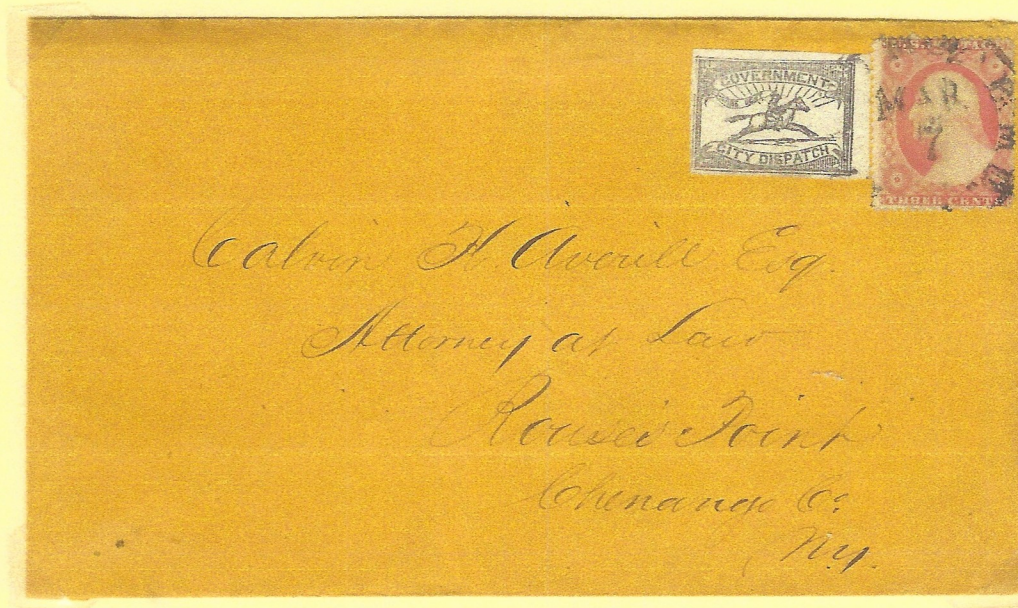 GOVERNMENT
CITY DISPATCH
MAR
7
THREE CENT
Calvin H. Averill Esq.
Attorney at Law
Rouse's Point
Chenango Co.
N.Y.